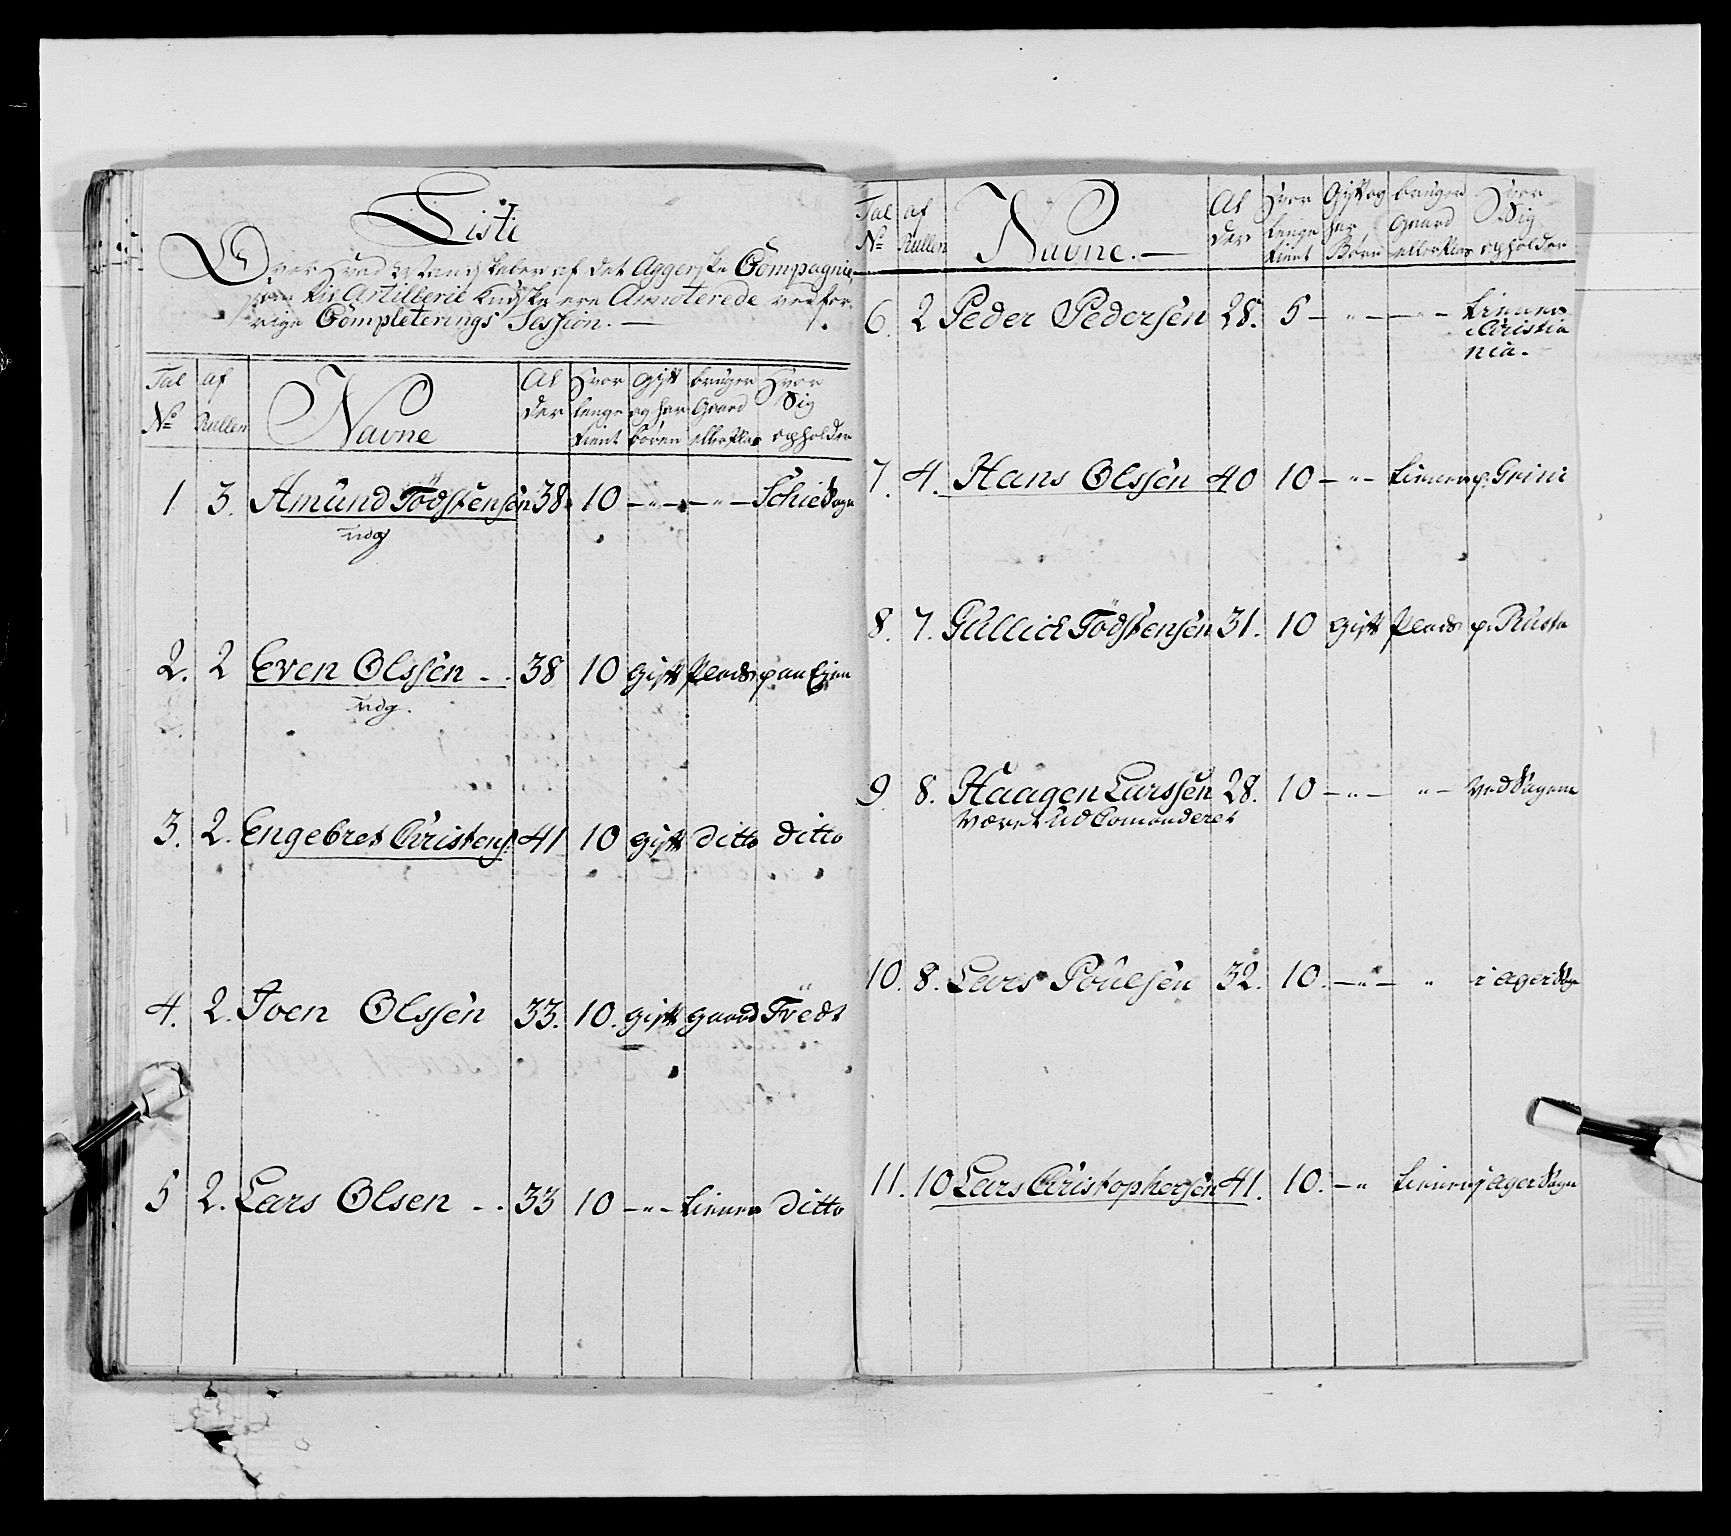 Liste
Over hved Mandskaber af det Aggerske Compagnie,
som til Artillerie Kudske ere Annoterede ved for-
rige Completerings Session. —
Tal No | af Rullen | Navne | Alder | Hvor lenge tient | gift og har børen | bruger Gaard eller Plas | Hvor Sig opholder
1 3. Amund Tostensen 38. 10 — " — — " — Schie Sogn
udg
2. 2 Even Olssen - - 38 10 gift Plads paa Ejen
udg.
3. 2. Engebret Christens: 41 10 gift ditto ditto
4. 2. Joen Olssen 33. 10. gift gaard Tvedt
5 2. Lars Olsen - - 33 10 — " — tiener ditto
Tal No | af Rullen | Navne. — | Alder | Hvor lenge tient | Gift og har Børn | bruger Gaard eller Plas | Hvor Sig opholder
6. 2 Peder Pedersen 28. 5 — " — — " — tiener
i Christia
nia.
7. 4. Hans Olssen 40 10 — " — tiener p: Grini
8. 7. Gullich Tostensen 31. 10 gift Plads p: Rusta
9. 8. Haagen Larssen 28. 10 — " — " — Ved Sagene
Været ud Comanderet
10. 8. Lars Poulsen 32. 10. — " — " i ager Sogn
11. 10 Lars Christophersen 41. 10. — " tiener i ager Sogn